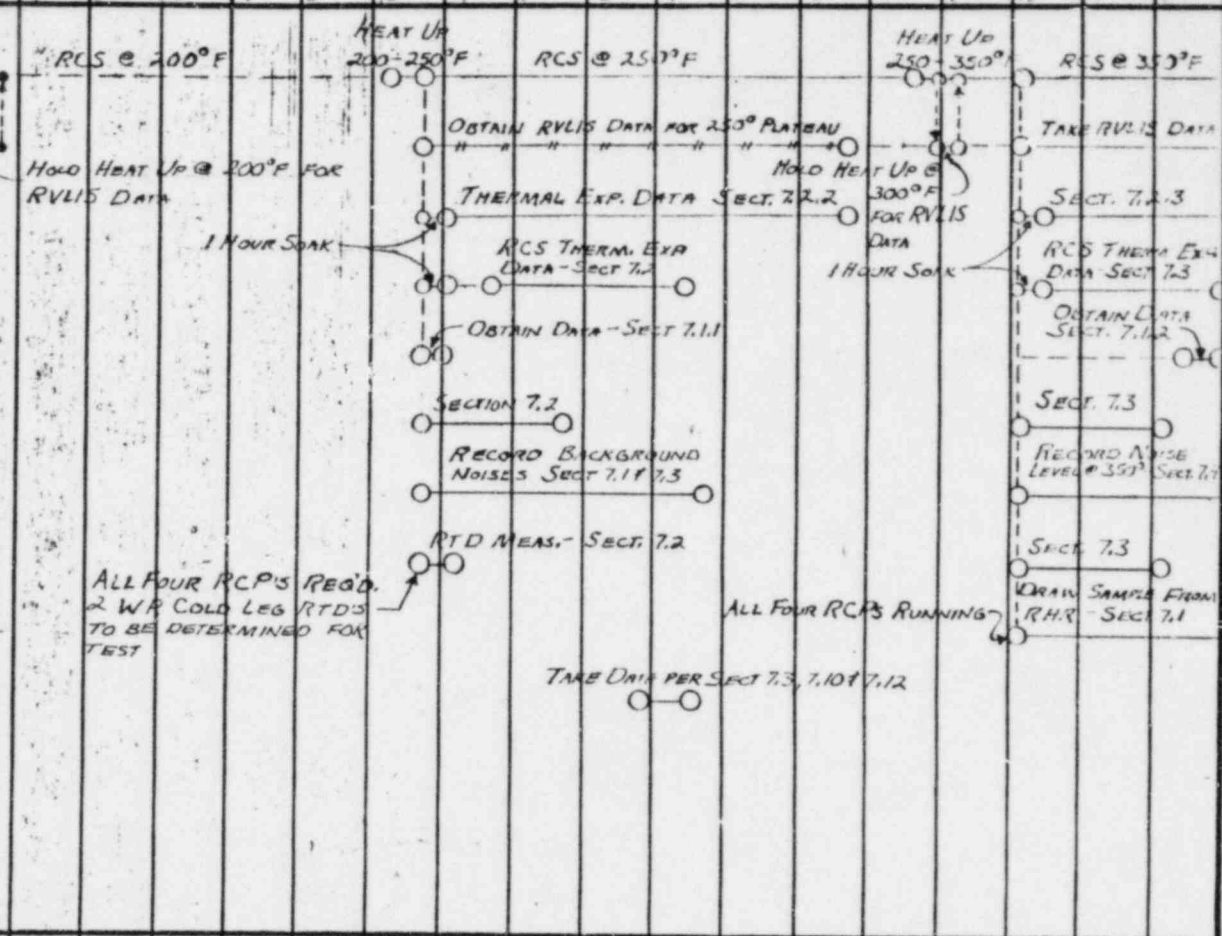 HEAT UP
200-250°F
RCS @ 200°F
RCS @ 250°F
HEAT UP
250-350°F
RCS @ 350°F
OBTAIN RVLIS DATA FOR 250° PLATEAU
TAKE RVLIS DATA
HOLD HEAT UP @ 200°F FOR
RVLIS DATA
HOLD HEAT UP @
300°F
FOR RVLIS
DATA
THERMAL EXP. DATA SECT. 7.2.2
SECT. 7.2.3
1 HOUR SOAK
RCS THERM. EXP
DATA-SECT 7.2
1 HOUR SOAK
RCS THERM EXP
DATA-SECT 7.3
OBTAIN DATA-SECT 7.1.1
OBTAIN DATA
SECT. 7.1.2
SECTION 7.2
SECT. 7.3
RECORD BACKGROUND
NOISES SECT 7.1 & 7.3
RECORD NOISE
LEVEL @ 350° SECT.
RTD MEAS.- SECT. 7.2
SECT. 7.3
ALL FOUR RCP'S REQ'D.
2 WR COLD LEG RTD'S
TO BE DETERMINED FOR
TEST
ALL FOUR RCP'S RUNNING
DRAW SAMPLE FROM
RHR - SECT 7.1
TAKE DATA PER SECT 7.3, 7.10 & 7.12